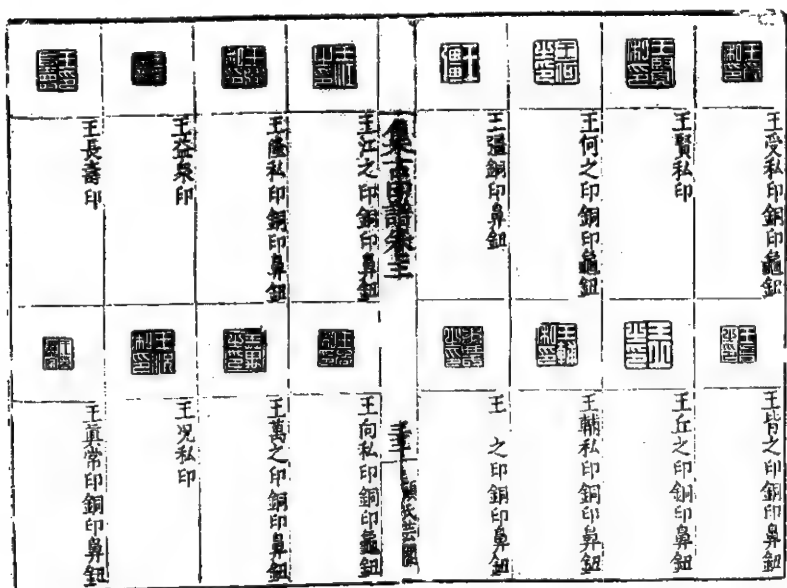 王受私印銅印龜鈕
王賢私印
王何之印銅印龜鈕
王彊銅印鼻鈕
王皆之印銅印鼻鈕
王丘之印銅印鼻鈕
王輔私印銅印鼻鈕
王 之印銅印鼻鈕
集古印譜卷三
顧氏芸閣
王江之印銅印鼻鈕
王隆私印銅印鼻鈕
王益泉印
王長壽印
王向私印銅印龜鈕
王萬之印銅印鼻鈕
王況私印
王眞常印銅印鼻鈕